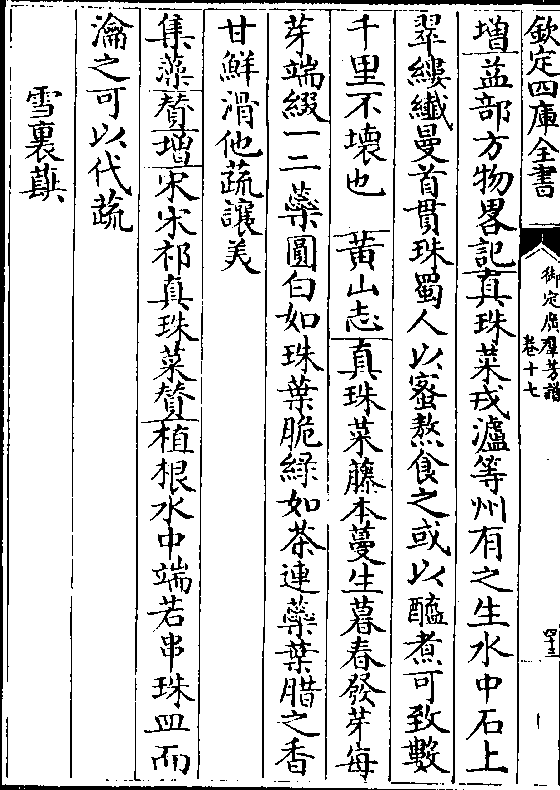 欽定四庫全書
御定廣羣芳譜
卷十七
四十三
增益部方物畧記真珠菜戎瀘等州有之生水中石上
翠縷纖曼首貫珠蜀人以蜜熬食之或以醯煮可致數
千里不壞也 黄山志真珠菜藤本蔓生暮春發芽每
芽端綴一二蘂圓白如珠葉脆緑如茶連蘂葉腊之香
甘鮮滑他蔬讓美
集藻贊增宋宋祁真珠菜贊植根水中端若串珠皿而
瀹之可以代蔬
雪裏蕻